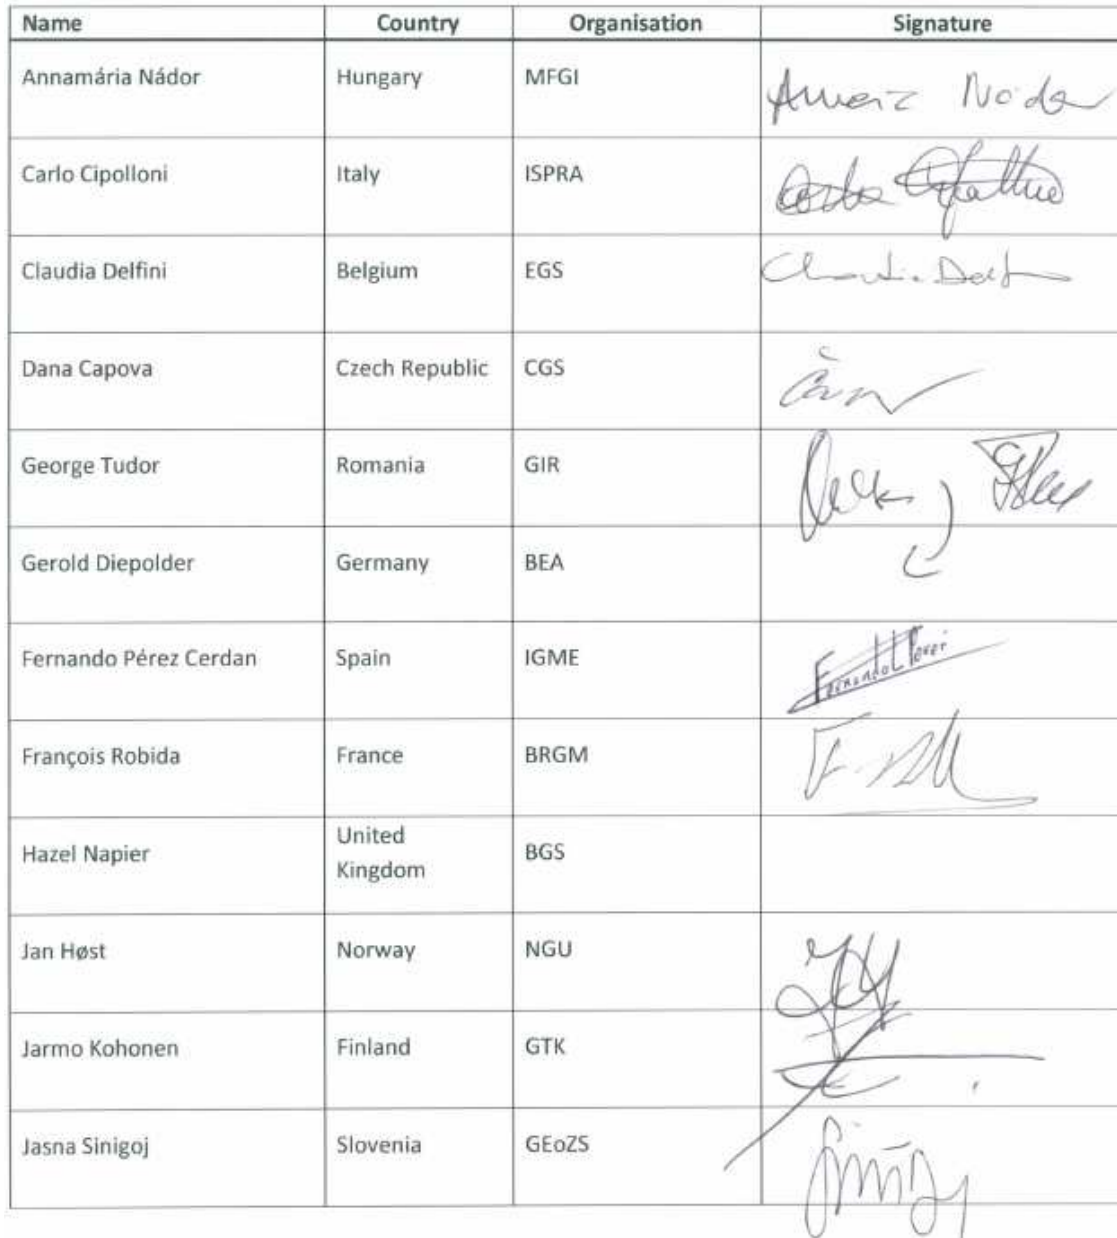 Name Country Organisation Signature
Annamária Nádor Hungary MFGI
Carlo Cipolloni Italy ISPRA
Claudia Delfini Belgium EGS
Dana Capova Czech Republic CGS
George Tudor Romania GIR
Gerold Diepolder Germany BEA
Fernando Pérez Cerdan Spain IGME
François Robida France BRGM
Hazel Napier United Kingdom BGS
Jan Høst Norway NGU
Jarmo Kohonen Finland GTK
Jasna Sinigoj Slovenia GEoZS